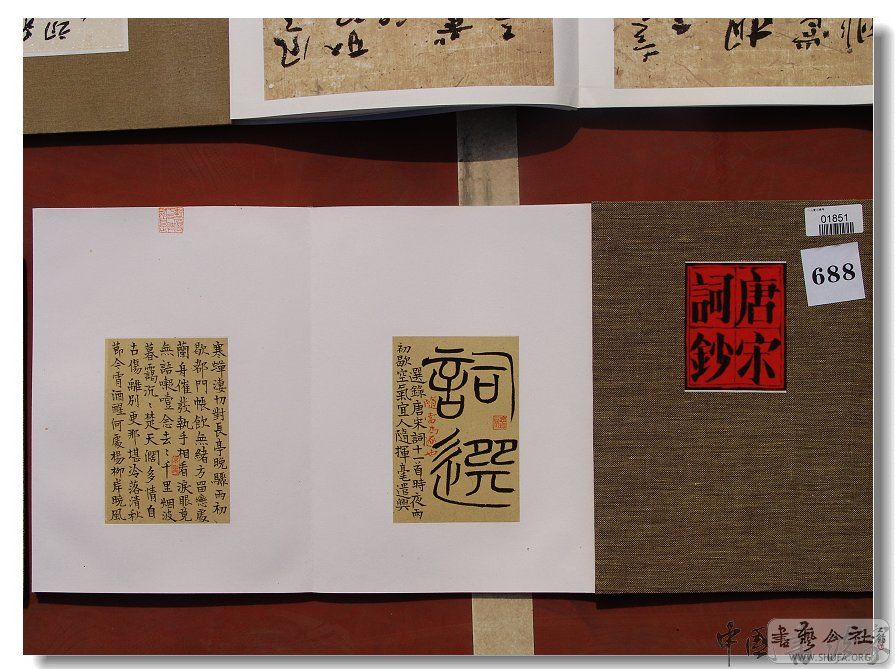 01851
688
唐宋
詞鈔
詞選
選錄唐宋詞十一首時夜雨
初歇空氣宜人隨揮毫遣興
寒蟬凄切對長亭晚驟雨初
歇都門帳飲無緒方留戀處
蘭舟催發執手相看淚眼竟
無語凝噎念去〻千里烟波
暮靄沉〻楚天闊多情自
古傷離別更那堪冷落清秋
節今宵酒醒何處楊柳岸曉風
中国書藝公社
WWW.SHUFA.ORG